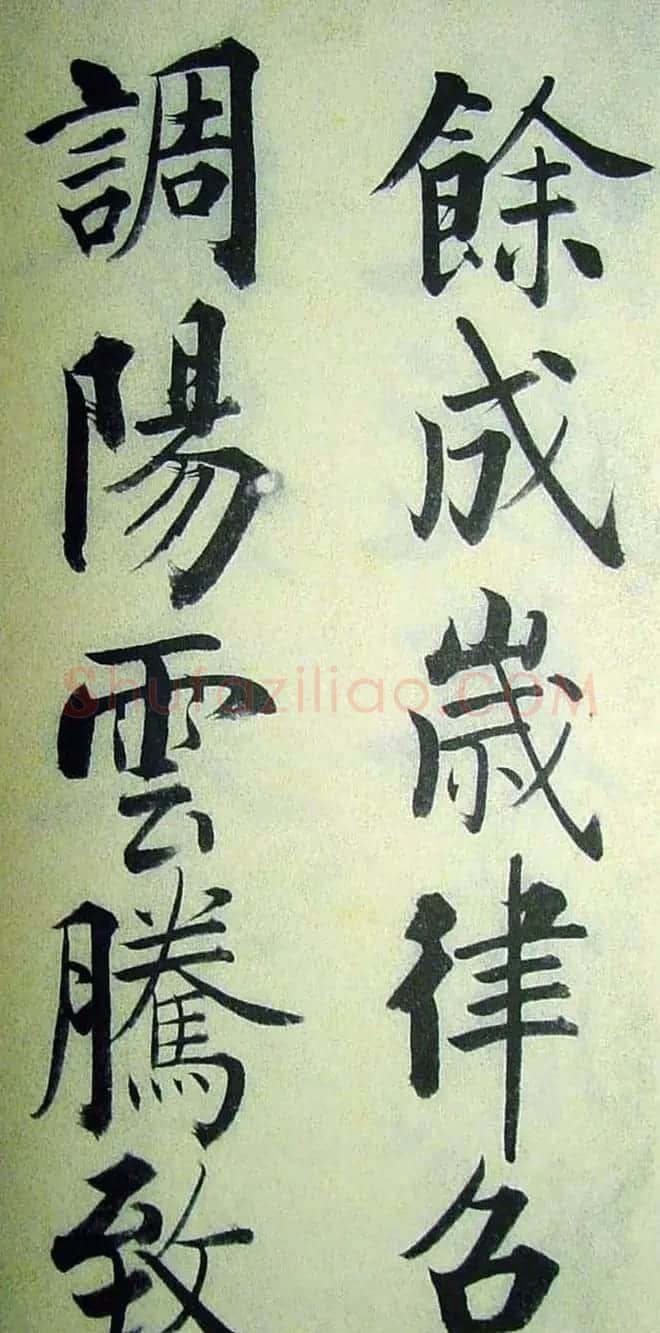 餘成嵗律召
調陽雲騰致
Shufaziliao.COM